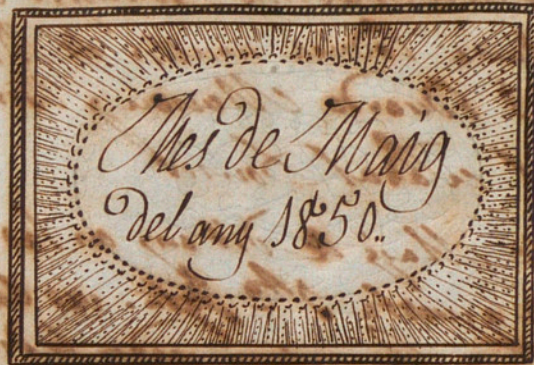 Mes de Maig
del any 1850..